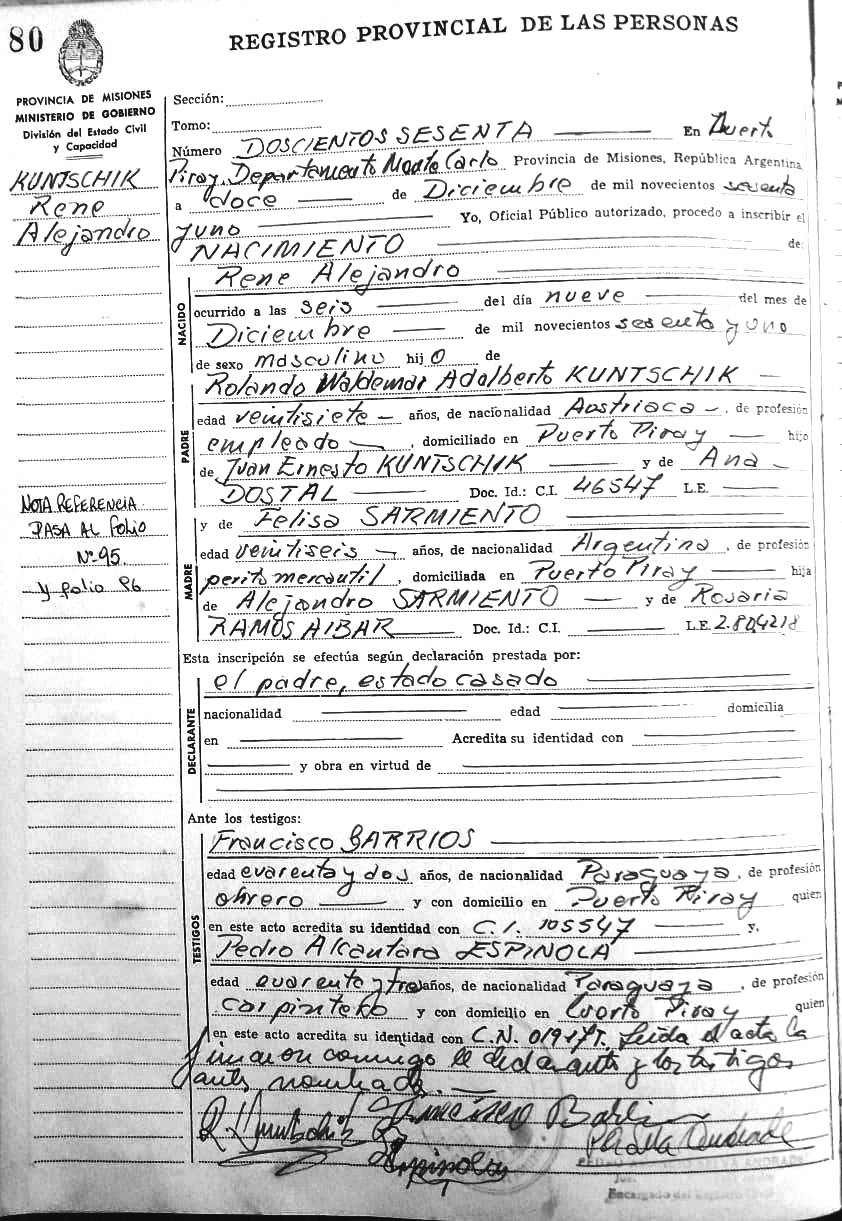 80
REGISTRO PROVINCIAL DE LAS PERSONAS
PROVINCIA DE MISIONES
MINISTERIO DE GOBIERNO
División del Estado Civil
y Capacidad
KUNTSCHIK
Rene
Alejandro
NOTA REFERENCIA
PASA AL folio
Nº 95.
y folio 96
Sección:
Tomo:
Número DOSCIENTOS SESENTA En Puerto
Piray, Departamento Monte Carlo Provincia de Misiones, República Argentina
a doce de Diciembre de mil novecientos sesenta
y uno Yo, Oficial Público autorizado, procedo a inscribir el
NACIMIENTO de:
Rene Alejandro
NACIDO
ocurrido a las seis del día nueve del mes de
Diciembre de mil novecientos sesenta y uno
de sexo masculino hijo de
PADRE
Rolando Waldemar Adalberto KUNTSCHIK
edad veintisiete años, de nacionalidad Austriaca, de profesión
empleado, domiciliado en Puerto Piray hijo
de Juan Ernesto KUNTSCHIK y de Ana
DOSTAL Doc. Id.: C.I. 46547 L.E.
MADRE
y de Felisa SARMIENTO
edad veintiseis años, de nacionalidad Argentina, de profesión
perito mercantil, domiciliada en Puerto Piray hija
de Alejandro SARMIENTO y de Rosaria
RAMOS AIBAR Doc. Id.: C.I. L.E. 2.804218
Esta inscripción se efectúa según declaración prestada por:
DECLARANTE
el padre, estado casado
nacionalidad edad domicilia
en Acredita su identidad con
y obra en virtud de
Ante los testigos:
TESTIGOS
Francisco BARRIOS
edad cuarenta y dos años, de nacionalidad Paraguaya, de profesión
obrero y con domicilio en Puerto Piray quien
en este acto acredita su identidad con C.I. 105547 y,
Pedro Alcantara ESPINOLA
edad cuarenta y tres años, de nacionalidad Paraguaya, de profesión
carpintero y con domicilio en Puerto Piray quien
en este acto acredita su identidad con C.N. Leida el acta la
firmaron conmigo el declarante y los testigos
antes nombrados.
Francisco Barrios
Espinola